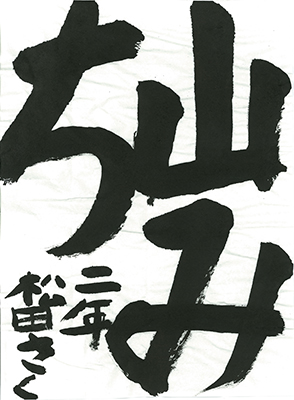 山み
ち
二年
松田さく